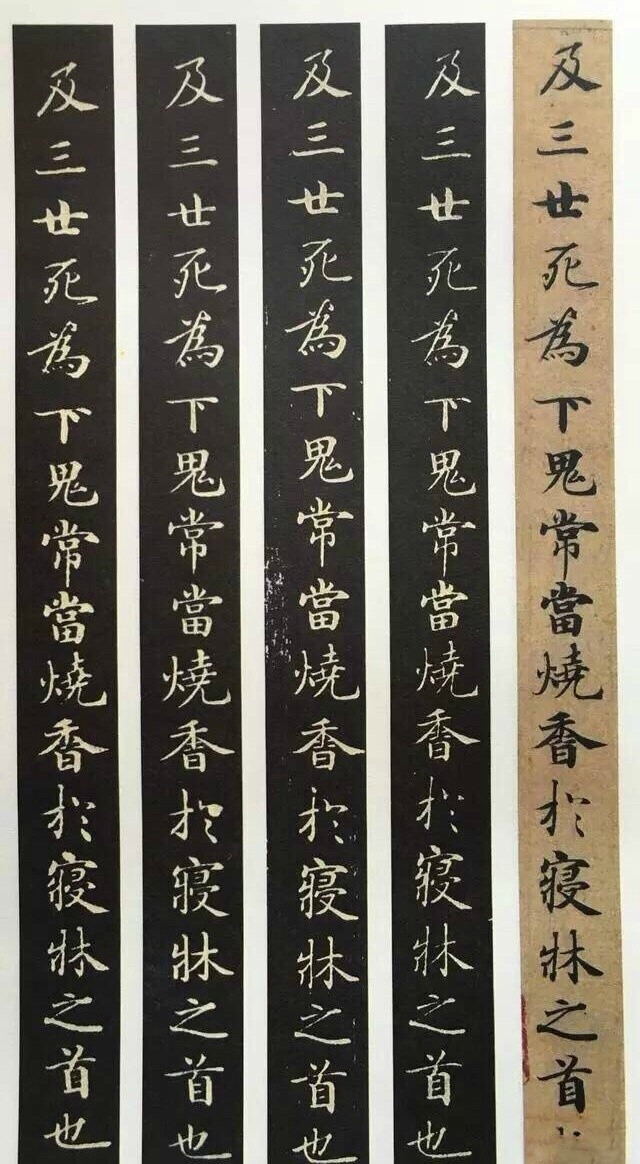 及三世死為下鬼常當燒香於寢牀之首
及三世死為下鬼常當燒香於寢牀之首也
及三世死為下鬼常當燒香於寢牀之首也
及三世死為下鬼常當燒香於寢牀之首也
及三世死為下鬼常當燒香於寢牀之首也